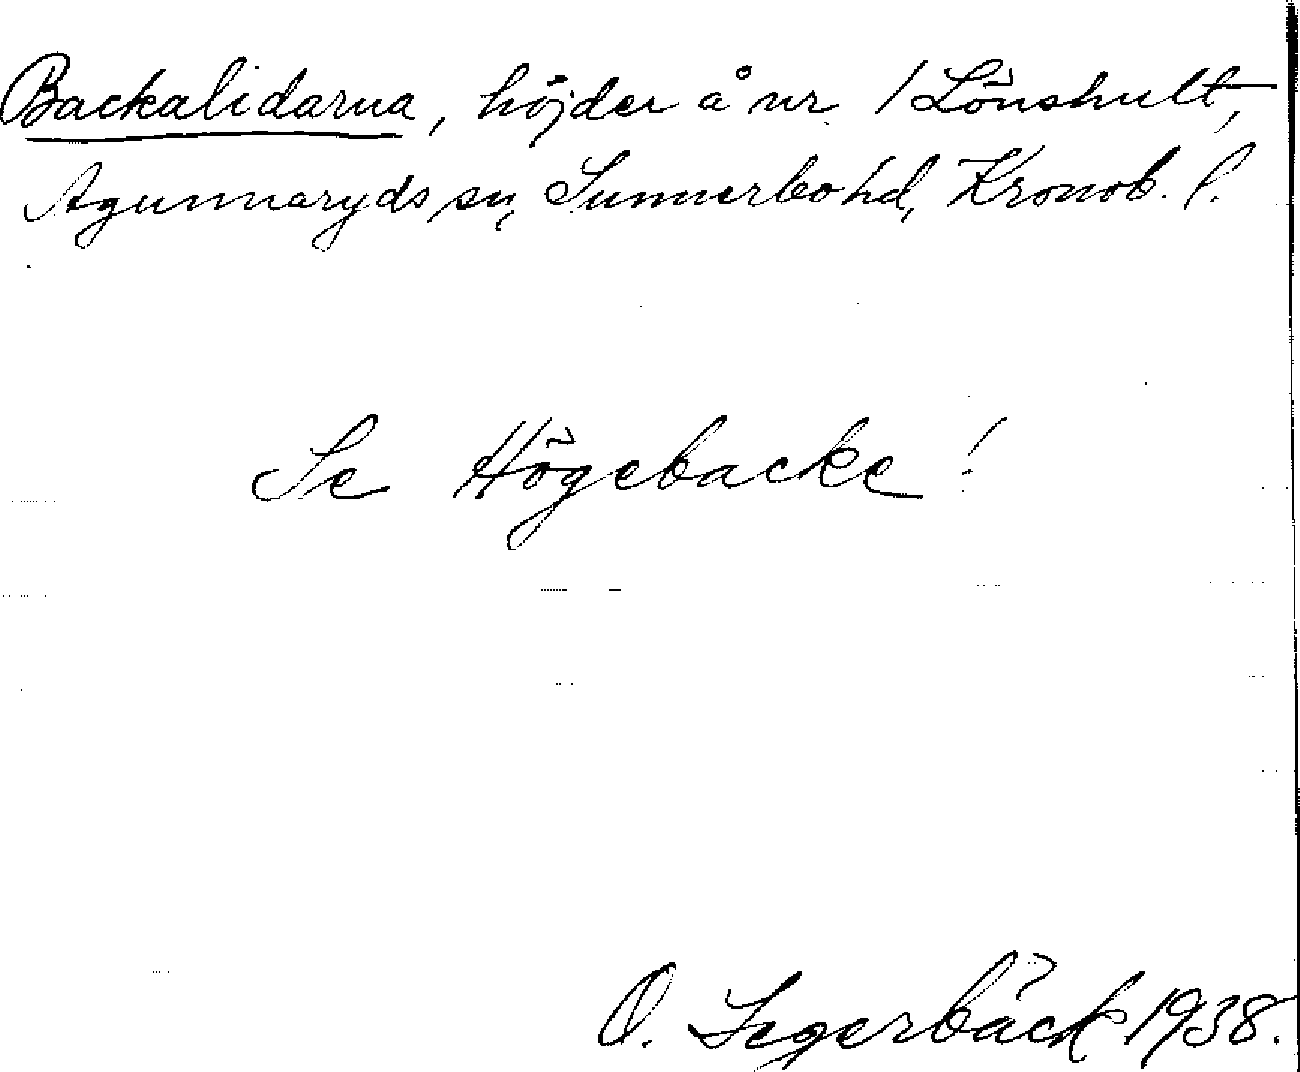 Backalidarna, höjder å nr 1 Lönshult,
Agunnaryds sn, Sunnerbo hd, Kronob. l.
Se Högebacke!
O. Segerbäck 1938.